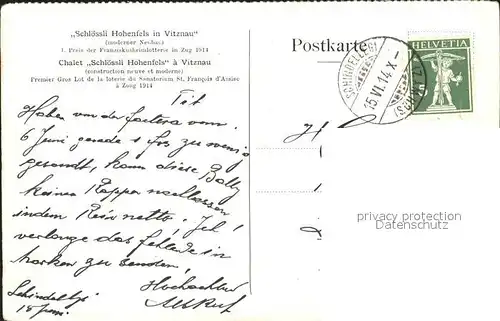 „Schlössli Hohenfels in Vitznau"
(moderner Neubau)
1. Preis der Franziskusheimlotterie in Zug 1914
Chalet „Schlössli Hohenfels" à Vitznau
(construction neuve et moderne)
Premier Gros Lot de la loterie du Sanatorium St. François d'Assise
à Zoug 1914
Postkarte
SCHINDELLEGI
15.VI.14.X-
(SCHWYZ)
HELVETIA
5
Tit
Haben von der factura vom
6 Juni gerade 1 frs zu wenig
gesandt, kann diese
keinen Rappen nachlassen
indem Rein netto. Ich
verlange das fehlende in
marken zu senden.
Hochachtend
Schindellegi
15 Juni.
privacy protection
Datenschutz